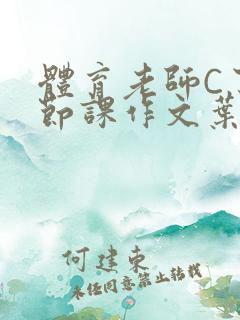 體育老師C
節課作文葉
何建東
未經同意禁止轉載